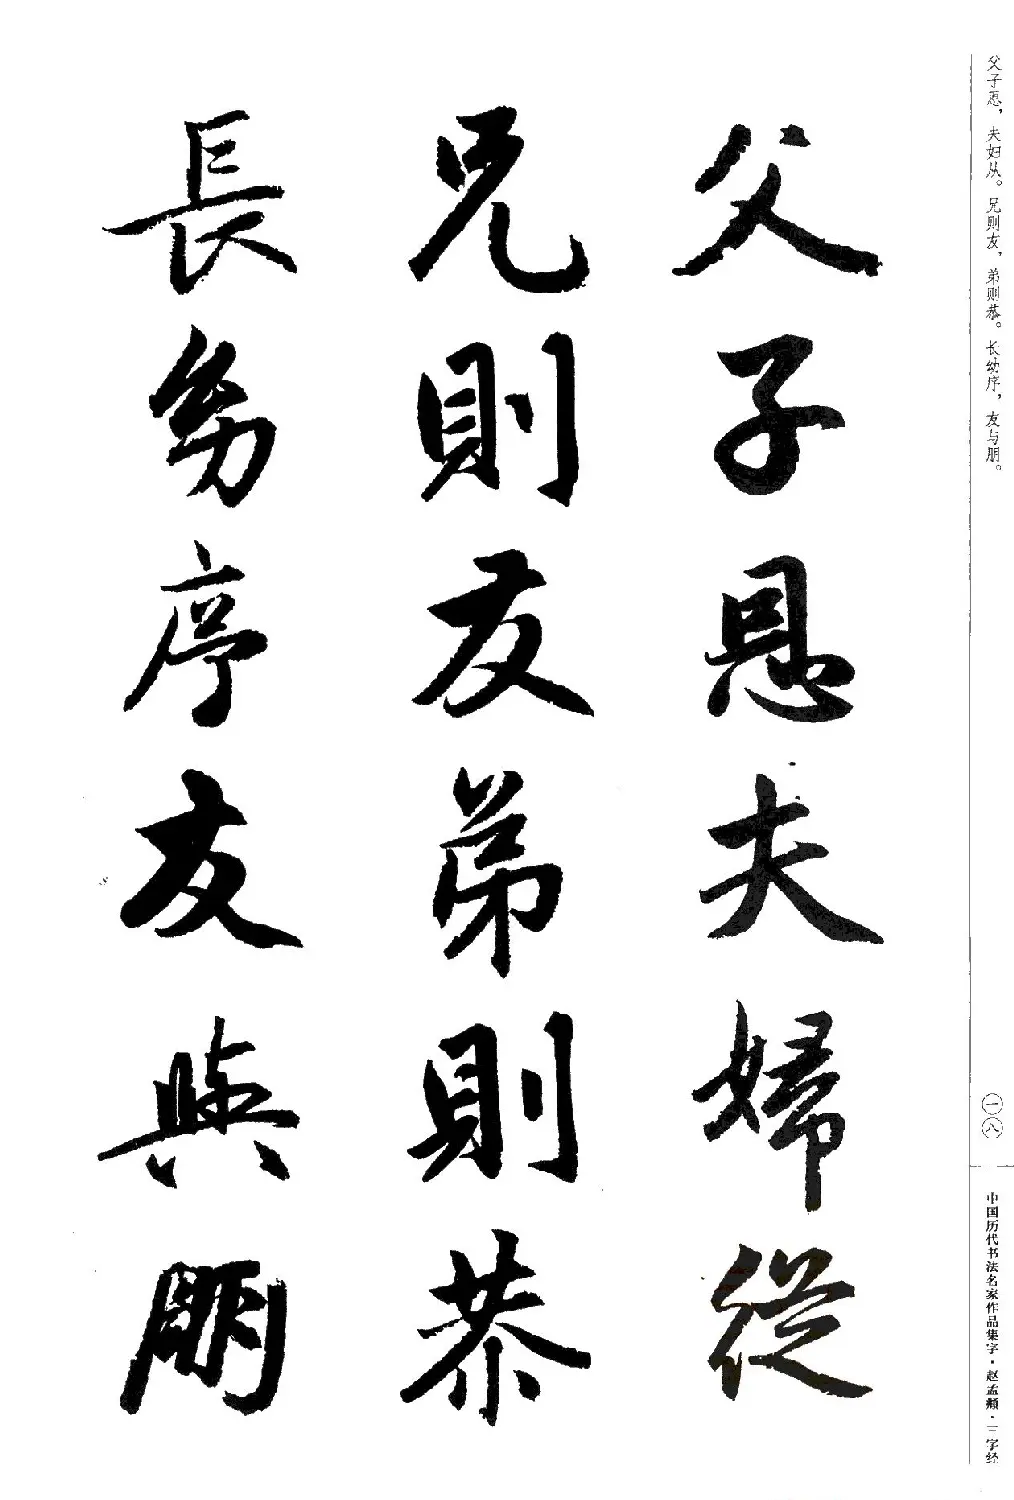 父子恩夫婦從
兄則友弟則恭
長幼序友與朋
父子恩，夫妇从。兄则友，弟则恭。长幼序，友与朋。
一八
中国历代书法名家作品集字·赵孟頫·三字经